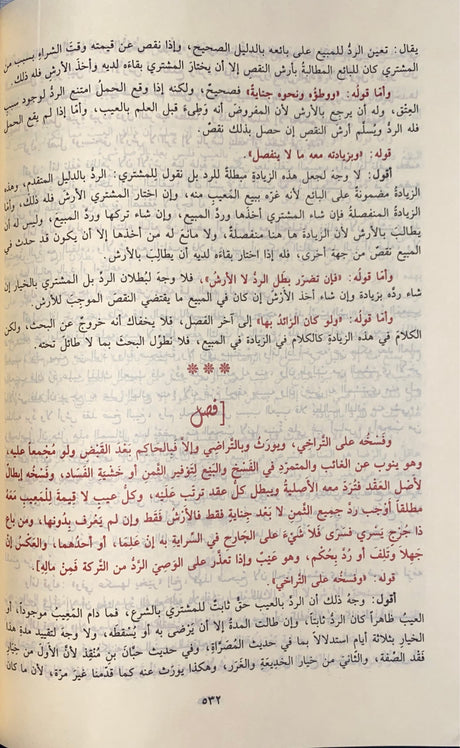 يقال: تعين الردُّ للمبيع على بائعه بالدليل الصحيح، وإذا نقص عن قيمته وقتَ الشراءِ بسبب من
المشتري كان للبائع المطالبةُ بأرش النقص إلا أن يختارَ المشتري بقاءَه لديه وأخذَ الأرش فله ذلك.
وأما قولُه: «ووطؤُه ونحوه جنايةٌ» فصحيحٌ، ولكنه إذا وقع الحملُ امتنع الردُّ لوجود سبب
العِتْق، وله أن يرجِع بالأرش لأن المفروضَ أنه وَطِىءَ قبل العلم بالعيب، وأمّا إذا لم يقع الحملُ
فله الردُّ ويُسلّم أرشَ النقصِ إن حصل بذلك نقصٌ.
قوله: «وبزيادته معه ما لا ينفصل».
أقول: لا وجهَ لجعل هذه الزيادةِ مبطلةً للرد بل نقول للمشتري: الردُّ بالدليل المتقدم، وهذه
الزيادةُ مضمونةٌ على البائع لأنه غرّه ببيع المَعيبِ منه، وإن اختار المشتري الأرشَ فله ذلك، وأما
الزيادةُ المنفصلةُ فإن شاء المشتري أخذَها وردَّ المبيعَ، وإن شاء تركها وردَّ المبيعَ، وليس له أن
يطالبَ بالأرش لأن الزيادةَ ها هنا منفصلةٌ، ولا مانعَ له من أخذها إلا أن يكون قد حدث في
المبيع نقصٌ من جهة أخرى، فله إذا اختار بقاءَه لديه أن يطالِبَ بالأرش.
وأما قولُه: «فإن تضرّر بطَل الردُّ لا الأرشُ»، فلا وجهَ لبُطلان الردِّ بل المشتري بالخيار إن
شاء ردَّه بزيادة وإن شاء أخذ الأرْشَ إن كان في المبيع ما يقتضي النقصَ الموجِبَ للأرش.
وأما قوله: «ولو كان الزائدُ بها» إلى آخر الفصل، فلا يخفاك أنه خروجٌ عن البحث، ولكن
الكلامَ في هذه الزيادةِ كالكلام في الزيادة في المبيع، فلا نطوّل البحثَ بما لا طائلَ تحته.
* * *
[فصل
وفَسْخُه على التَّراخي، ويورَثُ وبالتَّراضي وإلاّ فبالحَاكِم بعْدَ القَبْضِ ولو مُجْمعاً عليه،
وهو ينوب عن الغائب والمتمرّدِ في الفَسْخ والبَيْع لتَوْفير الثَّمنِ أو خَشْيةِ الفَسَاد، وفَسْخُه إبطالٌ
لأصْل العَقْد فتُرَدّ معه الأصليةُ ويبطل كلُّ عقد ترتّب عَلَيْه، وكلُّ عيب لا قيمةَ للْمَعيبِ مَعَهُ
مطلقاً أوْجب ردّ جميعِ الثّمنِ لا بَعْدَ جنايةٍ فقط فالأرْشُ فَقَط وإن لم يَعْرف بدُونها، ومن باع
ذا جُرْحٍ يَسْري فسَرَى فلا شَيْءَ على الجَارح في السِّراية به إنْ عَلِمَا، أو أحدُهما، والعَكْسُ إنْ
جَهِلاَ وتَلِفَ أو رُدَّ بحُكْمٍ، وهو عَيْبٌ وإذا تعذَّر على الوَصيّ الرّدُّ من التَّركة فَمنْ مالِهِ].
قوله: «وفَسْخُه على التَّراخي».
أقول: وجهُ ذلك أن الردَّ بالعيب حقٌّ ثابتٌ للمشتري بالشرع، فما دامَ المَعيبُ موجوداً، أو
العيبُ ظاهراً كان الردُّ ثابتاً، وإن طالت المدةُ إلا أن يَرْضى به أو يُسْقطَه، ولا وجهَ لتقييد مدةِ هذا
الخيار بثلاثة أيام استدلالاً بما في حديث المُصَرّاة، وفي حديث حَبَّان بنِ مُنْقِذ لأن الأولَ من خِيَار
فَقْد الصِّفة، والثّانيَ من خيار الخَديعةِ والغَرَرِ، وهكذا يورَثُ عنه كما قدّمنا غيرَ مرّة، لأن ما كان
٥٣٢